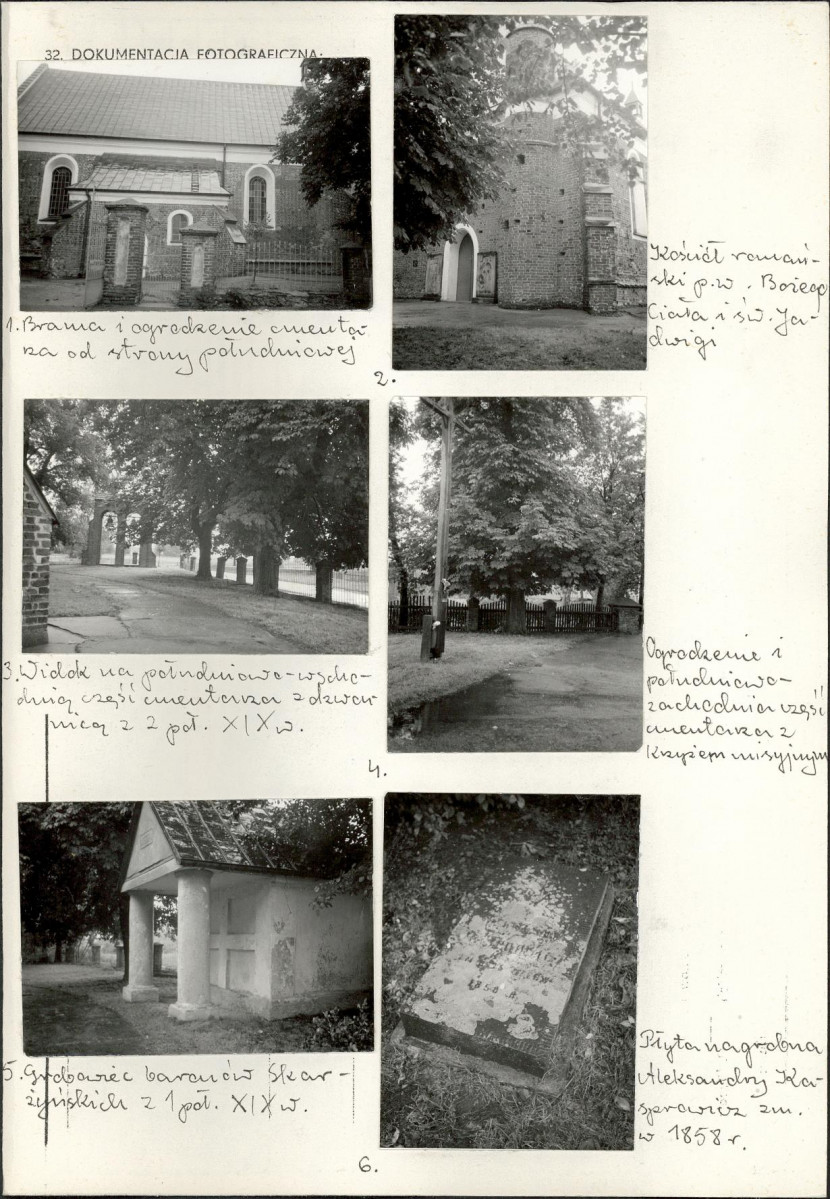 32. DOKUMENTACJA FOTOGRAFICZNA:
1. Brama i ogrodzenie cmenta-
rza od strony południowej
2.
Kościół romań-
ski p.w. Bożego
Ciała i św. Ja-
dwigi
3. Widok na południowo-wscho-
dnią część cmentarza z dzwon-
nicą z 2 poł. XIX w.
4.
Ogrodzenie i
południowo-
zachodnia część
cmentarza z
krzyżem misyjnym
5. Grobowiec baronów Skar-
żyńskich z 1 poł. XIX w.
6.
Płyta nagrobna
Aleksandry Ka-
sprowicz zm.
w 1858 r.